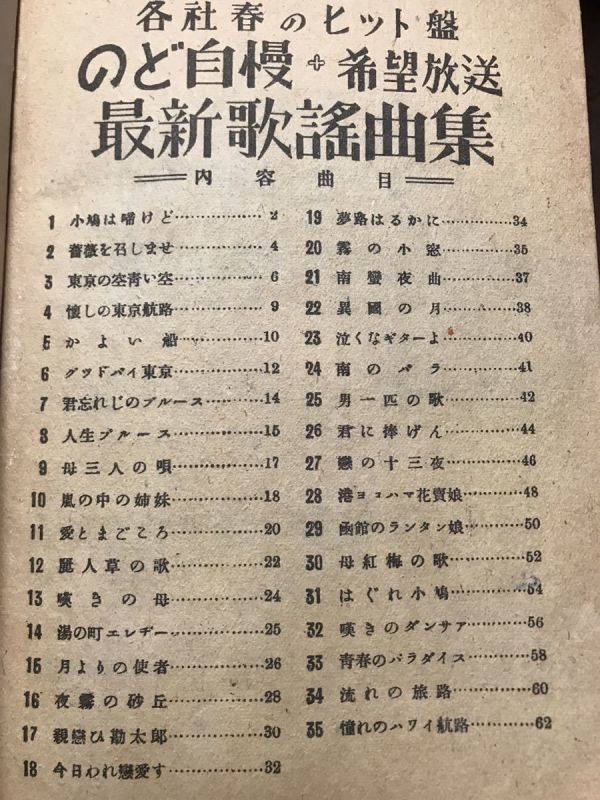 各社春のヒット盤
のど自慢+希望放送
最新歌謡曲集
内容曲目
1 小鳩は啼けど……………2
2 薔薇を召しませ……………4
3 東京の空青い空……………6
4 懐しの東京航路……………9
5 かよい船……………10
6 グッドバイ東京……………12
7 君忘れじのブルース……………14
8 人生ブルース……………15
9 母三人の唄……………17
10 嵐の中の姉妹……………18
11 愛とまごころ……………20
12 麗人草の歌……………22
13 嘆きの母……………24
14 湯の町エレヂー……………25
15 月よりの使者……………26
16 夜霧の砂丘……………28
17 親戀ひ勘太郎……………30
18 今日われ戀愛す……………32
19 夢路はるかに……………34
20 霧の小窓……………35
21 南蠻夜曲……………37
22 異國の月……………38
23 泣くなギターよ……………40
24 南のバラ……………41
25 男一匹の歌……………42
26 君に捧げん……………44
27 戀の十三夜……………46
28 港ヨコハマ花賣娘……………48
29 函館のランタン娘……………50
30 母紅梅の歌……………52
31 はぐれ小鳩……………54
32 嘆きのダンサア……………56
33 青春のパラダイス……………58
34 流れの旅路……………60
35 憧れのハワイ航路……………62